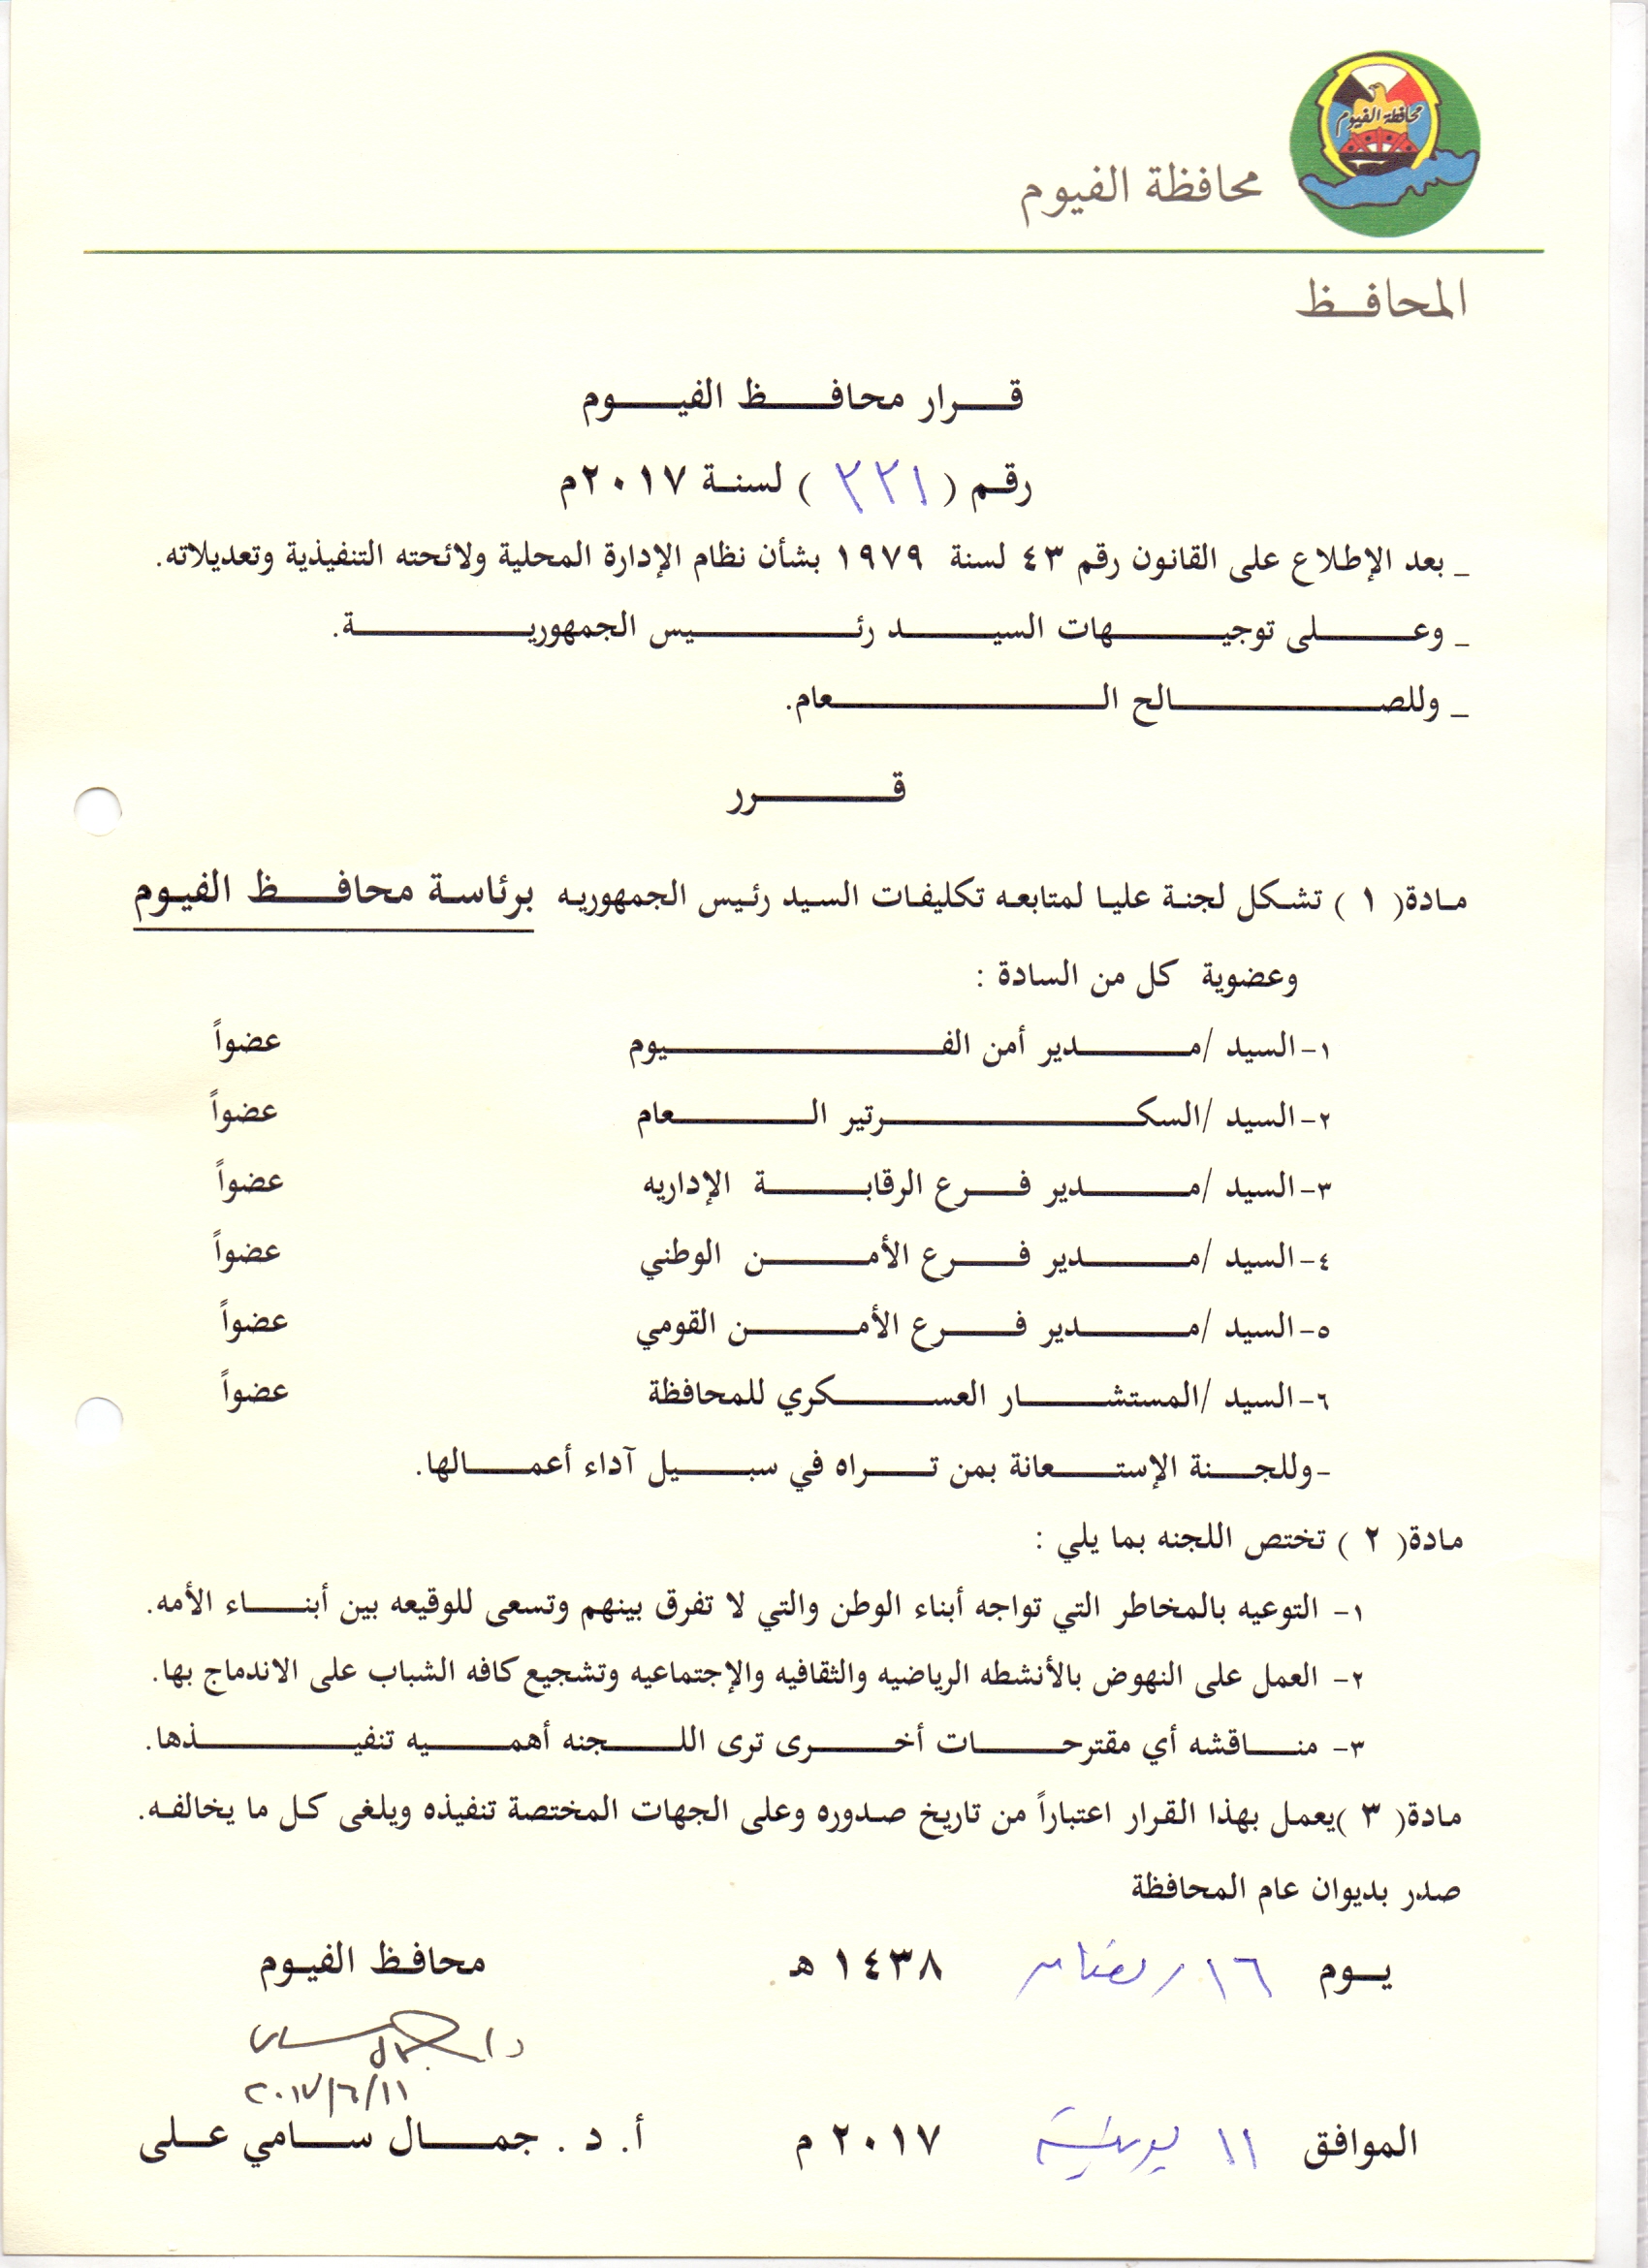 محافظة الفيوم
محافظة الفيوم
المحافظ
قرار محافظ الفيوم
رقم ( ٢٢١ ) لسنة ٢٠١٧م
_ بعد الإطلاع على القانون رقم ٤٣ لسنة ١٩٧٩ بشأن نظام الإدارة المحلية ولائحته التنفيذية وتعديلاته.
_ وعلى توجيهات السيد رئيس الجمهورية.
_ وللصالح العام.
قرر
مادة( ١ ) تشكل لجنة عليا لمتابعه تكليفات السيد رئيس الجمهوريه برئاسة محافظ الفيوم
وعضوية كل من السادة :
١- السيد /مدير أمن الفيوم عضواً
٢- السيد /السكرتير العام عضواً
٣- السيد /مدير فرع الرقابة الإداريه عضواً
٤- السيد /مدير فرع الأمن الوطني عضواً
٥- السيد /مدير فرع الأمن القومي عضواً
٦- السيد /المستشار العسكري للمحافظة عضواً
-وللجنة الإستعانة بمن تراه في سبيل آداء أعمالها.
مادة( ٢ ) تختص اللجنه بما يلي :
١- التوعيه بالمخاطر التي تواجه أبناء الوطن والتي لا تفرق بينهم وتسعى للوقيعه بين أبناء الأمه.
٢- العمل على النهوض بالأنشطه الرياضيه والثقافيه والإجتماعيه وتشجيع كافه الشباب على الاندماج بها.
٣- مناقشه أي مقترحات أخرى ترى اللجنه أهميه تنفيذها.
مادة( ٣ )يعمل بهذا القرار اعتباراً من تاريخ صدوره وعلى الجهات المختصة تنفيذه ويلغى كل ما يخالفه.
صدر بديوان عام المحافظة
يوم ١٦ رمضان ١٤٣٨ هـ محافظ الفيوم
٢٠١٧/٦/١١
الموافق ١١ يونية ٢٠١٧ م أ. د . جمال سامي على